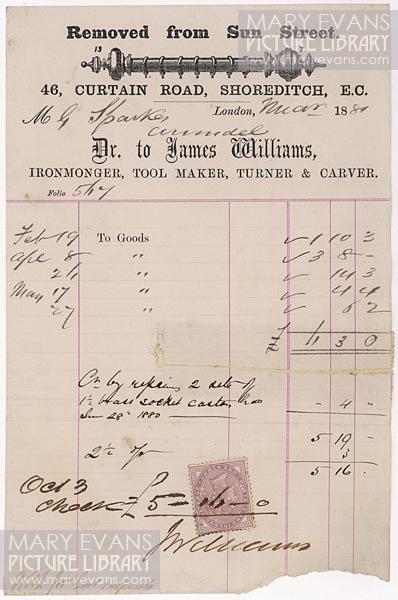 MARY EVANS
PICTURE LIBRARY
www.maryevans.com
Removed from Sun Street.
13
46, CURTAIN ROAD, SHOREDITCH, E.C.
London, 188
M G Sparkes
Arundel
Dr. to James Williams,
IRONMONGER, TOOL MAKER, TURNER & CARVER.
Folio 567
Feb 19 To Goods ✓ 1 10 3
Apl 8 " ✓ 3 8 –
21 " ✓ 14 3
May 17 " ✓ 4 4
27 " ✓ 6 2
3 0
Cr by repairing 2 sets of
1½ brass socket castors
Jan 28th 1880 – 4 "
5 19 –
2½ % 3
5 16 –
Oct 3
Check £5 = 16 – 0
JWilliams
MARY EVANS
PICTURE LIBRARY
www.maryevans.com